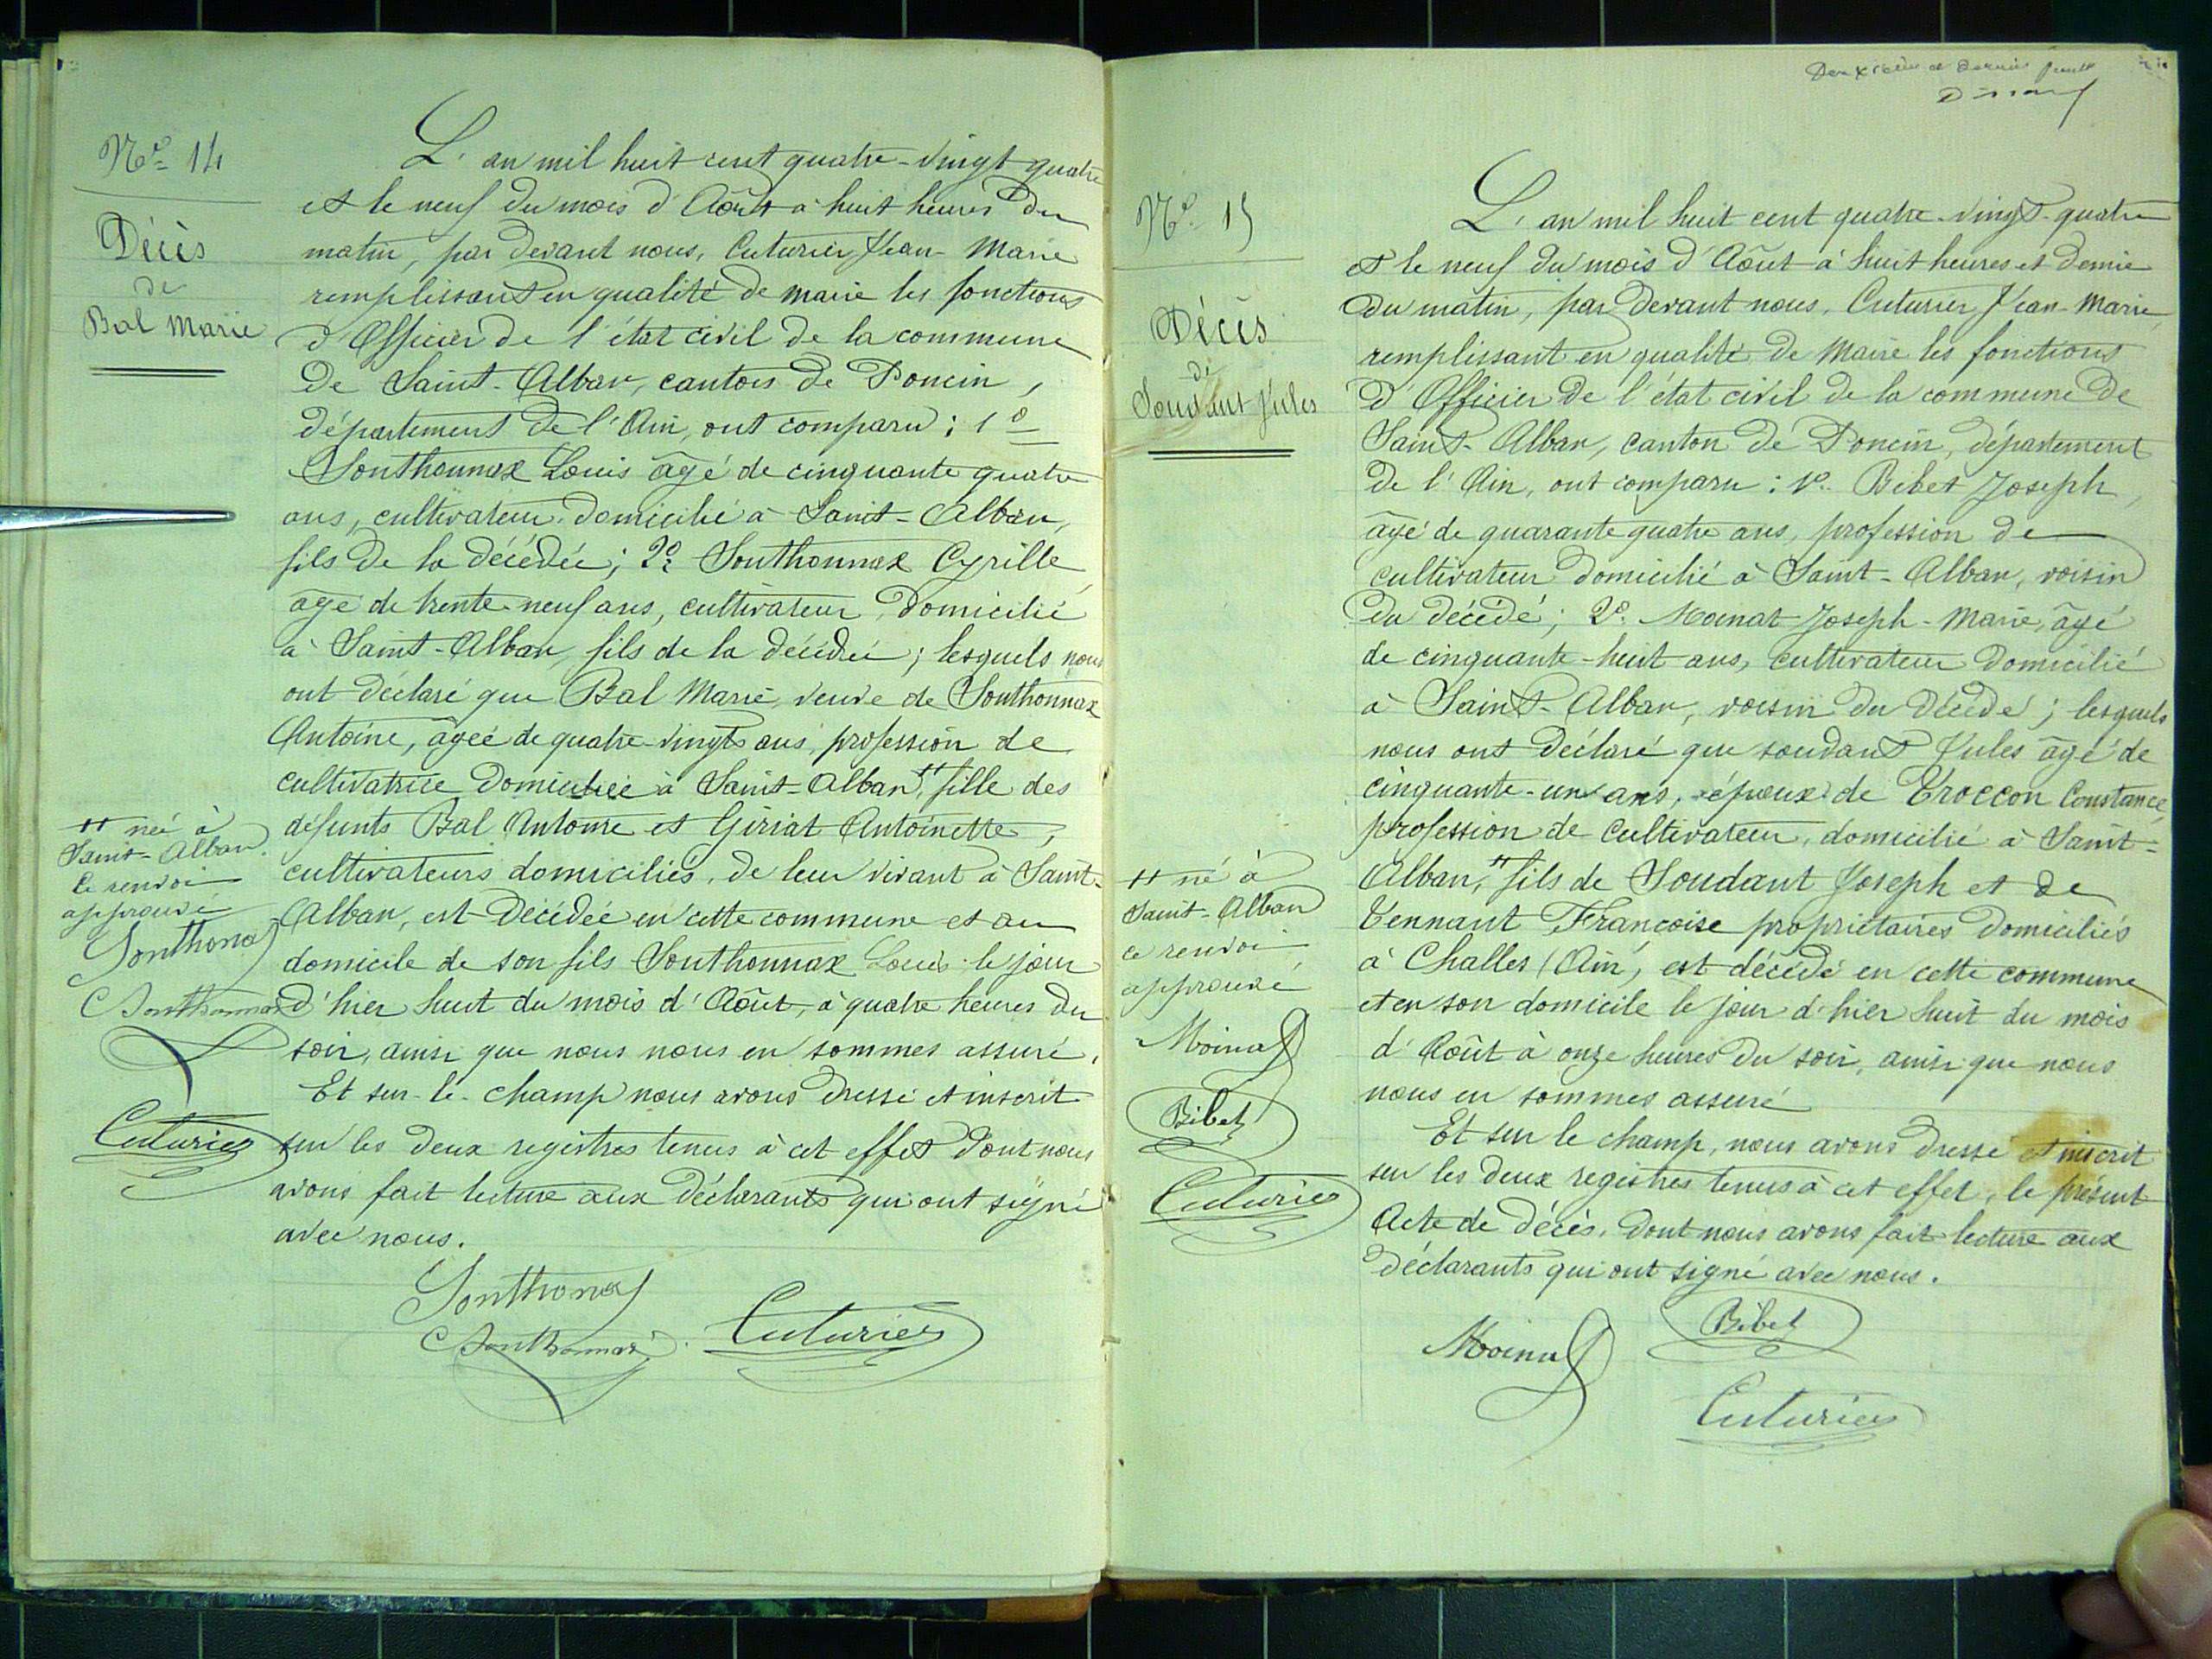 No 14
Décès
de
Bal Marie
L'an mil huit cent quatre-vingt quatre
et le neuf du mois d'Août à huit heures du
matin, par devant nous, Cuturier Jean-Marie
remplissant en qualité de maire les fonctions
d'Officier de l'état civil de la commune
de Saint-Alban, canton de Poncin,
département de l'Ain, ont comparu : 1o
Southonnax Louis âgé de cinquante quatre
ans, cultivateur domicilié à Saint-Alban,
fils de la décédée ; 2o Southonnax Cyrille,
âgé de trente-neuf ans, cultivateur, domicilié
à Saint-Alban, fils de la décédée ; lesquels nous
ont déclaré que Bal Marie, veuve de Southonnax
Antoine, âgée de quatre-vingts ans, profession de
cultivatrice domiciliée à Saint-Alban, # fille des
défunts Bal Antoine et Giriat Antoinette,
cultivateurs domiciliés, de leur vivant à Saint-
Alban, est décédée en cette commune et au
domicile de son fils Southonnax Louis le jour
d'hier huit du mois d'Août, à quatre heures du
soir, ainsi que nous nous en sommes assuré.
Et sur-le-champ nous avons dressé et inscrit
sur les deux registres tenus à cet effet dont nous
avons fait lecture aux déclarants qui ont signé
avec nous.
# née à
Saint-Alban.
le renvoi
approuvé
Sonthonax
C Sonthonnax
Cuturier
Sonthonax
C Sonthonnax
Cuturier
Deuxième et dernier feuillet
No 15
Décès
de
Soudant Jules
L'an mil huit cent quatre-vingt-quatre
et le neuf du mois d'Août à huit heures et demie
du matin, par devant nous, Cuturier Jean-Marie,
remplissant en qualité de Maire les fonctions
d'Officier de l'état civil de la commune de
Saint-Alban, canton de Poncin, département
de l'Ain, ont comparu : 1o Bibet Joseph,
âgé de quarante quatre ans, profession de
cultivateur domicilié à Saint-Alban, voisin
du décédé ; 2o Moinat Joseph-Marie, âgé
de cinquante-huit ans, cultivateur domicilié
à Saint-Alban, voisin du décédé ; lesquels
nous ont déclaré que soudant Jules âgé de
cinquante-un ans, époux de Troccon Constance,
profession de Cultivateur, domicilié à Saint-
Alban, # fils de Soudant Joseph et de
Tennant Françoise propriétaires domiciliés
à Challes (Ain, est décédé en cette commune
et en son domicile le jour d'hier huit du mois
d'Août à onze heures du soir, ainsi que nous
nous en sommes assuré
Et sur le champ, nous avons dressé et inscrit
sur les deux registres tenus à cet effet, le présent
Acte de décès, dont nous avons fait lecture aux
déclarants qui ont signé avec nous.
# né à
Saint-Alban
ce renvoi
approuvé
Moinat
Bibet
Cuturier
Moinat
Bibet
Cuturier